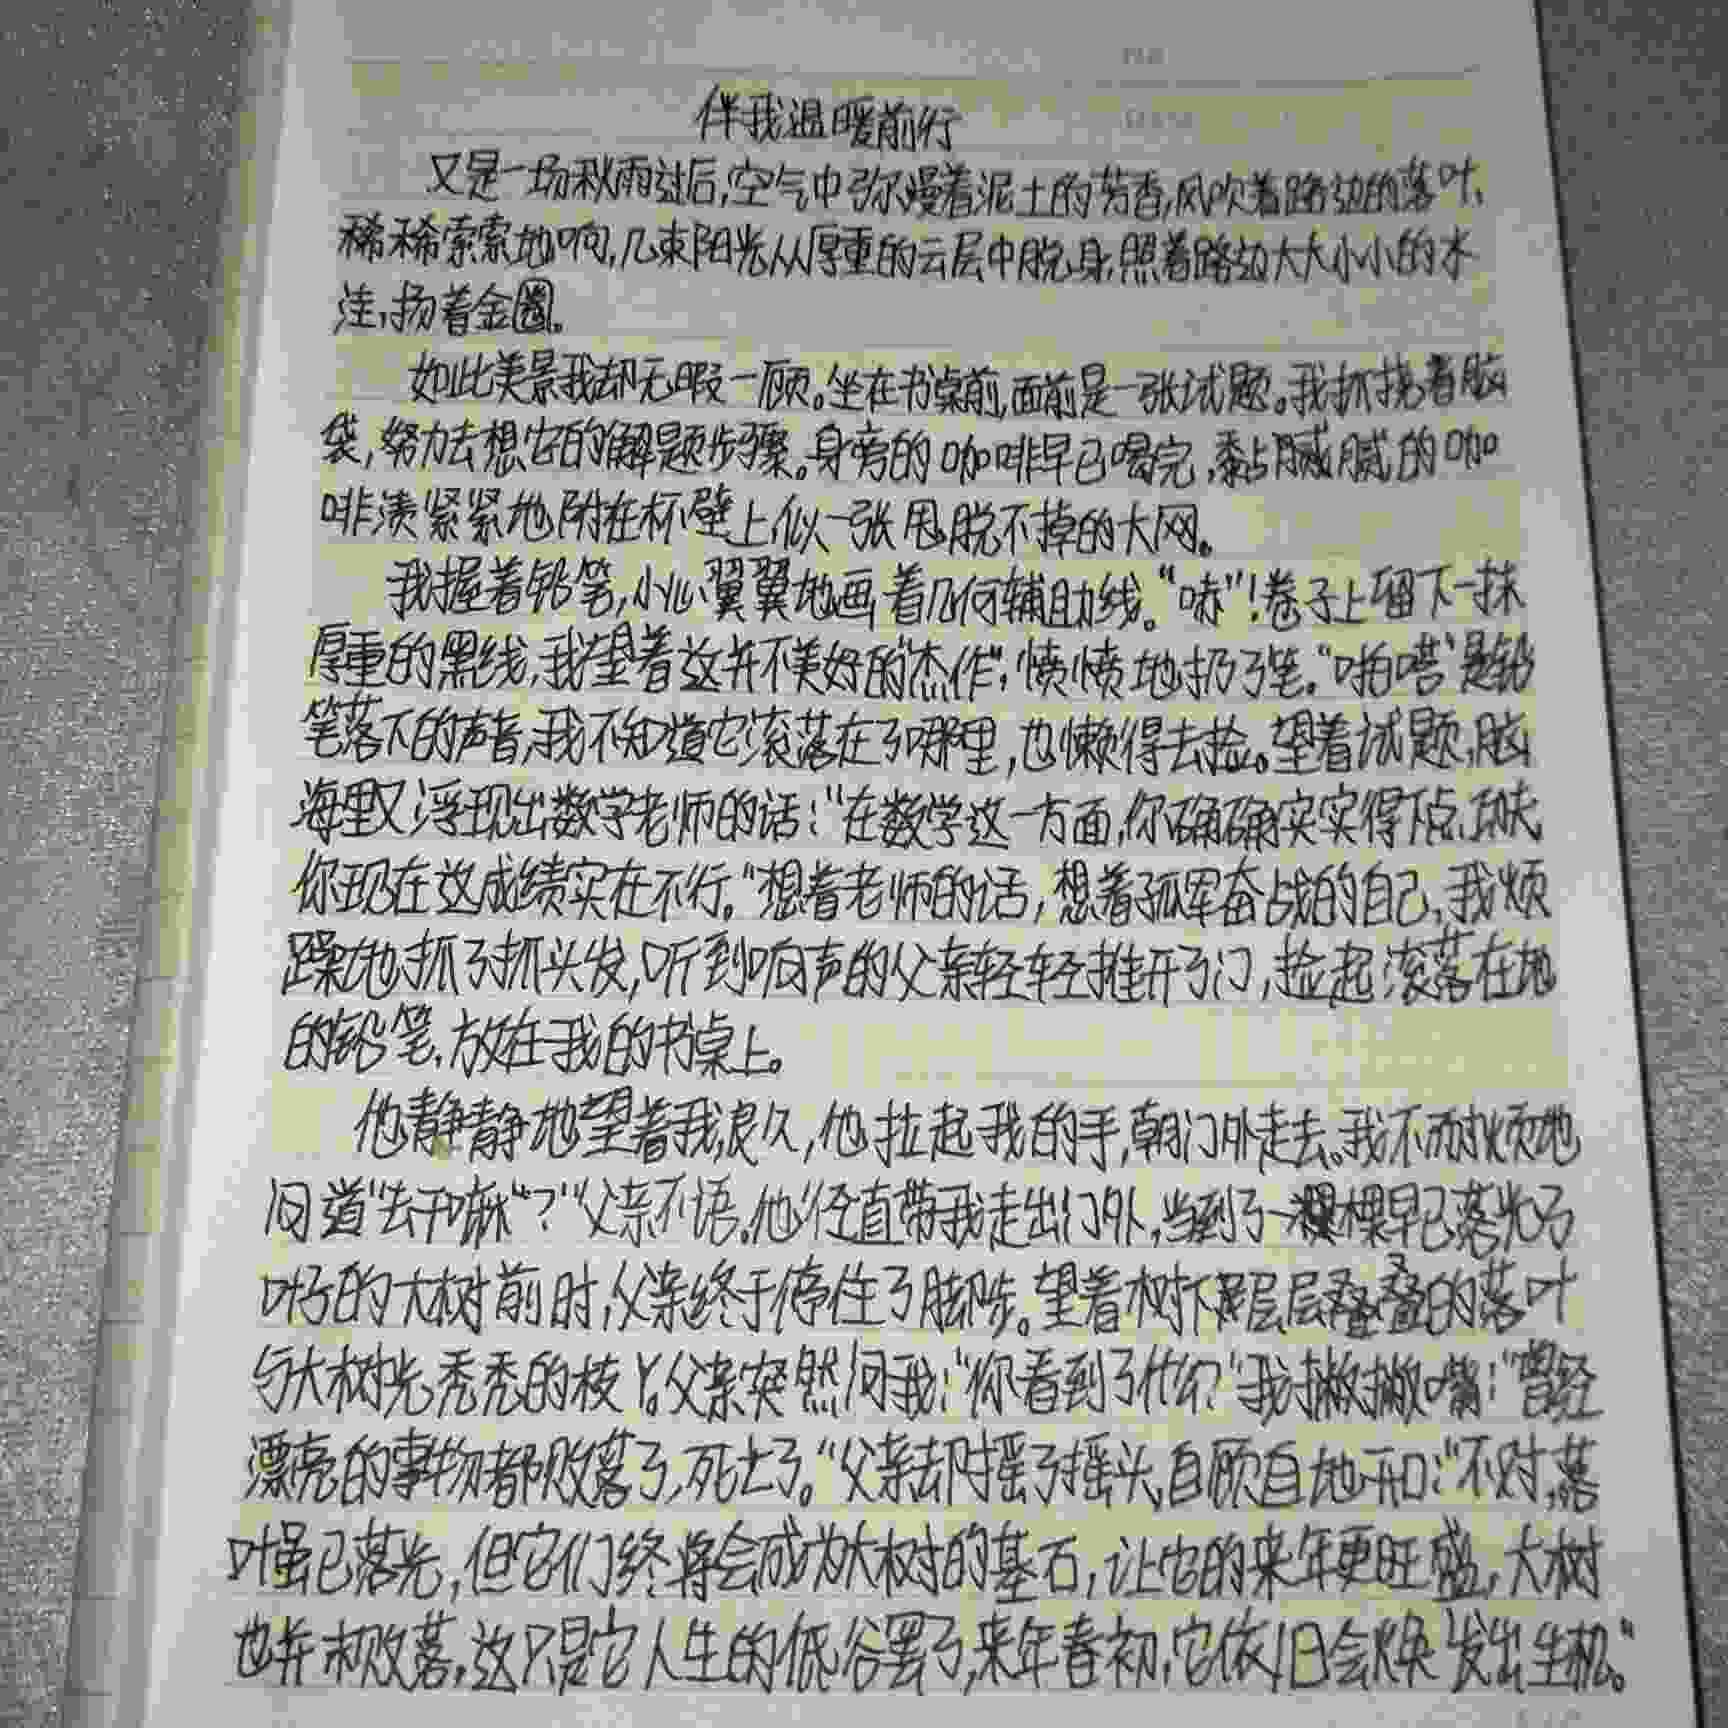 伴我温暖前行
又是一场秋雨过后,空气中弥漫着泥土的芳香,风吹着路边的落叶,
稀稀索索地响,几束阳光从厚重的云层中脱身,照着路边大大小小的水
洼,扬着金圈。
如此美景我却无暇一顾。坐在书桌前,面前是一张试题。我抓挠着脑
袋,努力去想它的解题步骤。身旁的咖啡早已喝完,黏腻腻的咖
啡渍紧紧地附在杯壁上,似一张甩脱不掉的大网。
我握着铅笔,小心翼翼地画着几何辅助线。“哧”!卷子上留下一抹
厚重的黑线,我望着这并不美好的“杰作”,愤愤地扔了笔。“啪嗒”是铅
笔落下的声音,我不知道它滚落在了哪里,也懒得去捡。望着试题,脑
海里又浮现出数学老师的话:“在数学这一方面,你确确实实得下点功夫,
你现在这成绩实在不行。”想着老师的话,想着孤军奋战的自己,我烦
躁地抓了抓头发,听到响声的父亲轻轻推开了门,捡起滚落在地
的铅笔,放在我的书桌上。
他静静地望着我,良久,他拉起我的手,朝门外走去。我不耐烦地
问道“去干嘛”?“父亲不语。他径直带我走出门外,当到了一棵早已落光了
叶子的大树前时,父亲终于停住了脚步。望着树下层层叠叠的落叶
与大树光秃秃的枝丫。父亲突然问我:“你看到了什么?”我撇撇嘴:“曾经
漂亮的事物都败落了,死去了。”父亲却摇了摇头,自顾自地开口:“不对,落
叶虽已落光,但它们终将会成为大树的基石,让它的来年更旺盛,大树
也并未败落,这只是它人生的低谷罢了,来年春初,它依旧会焕发出生机。”